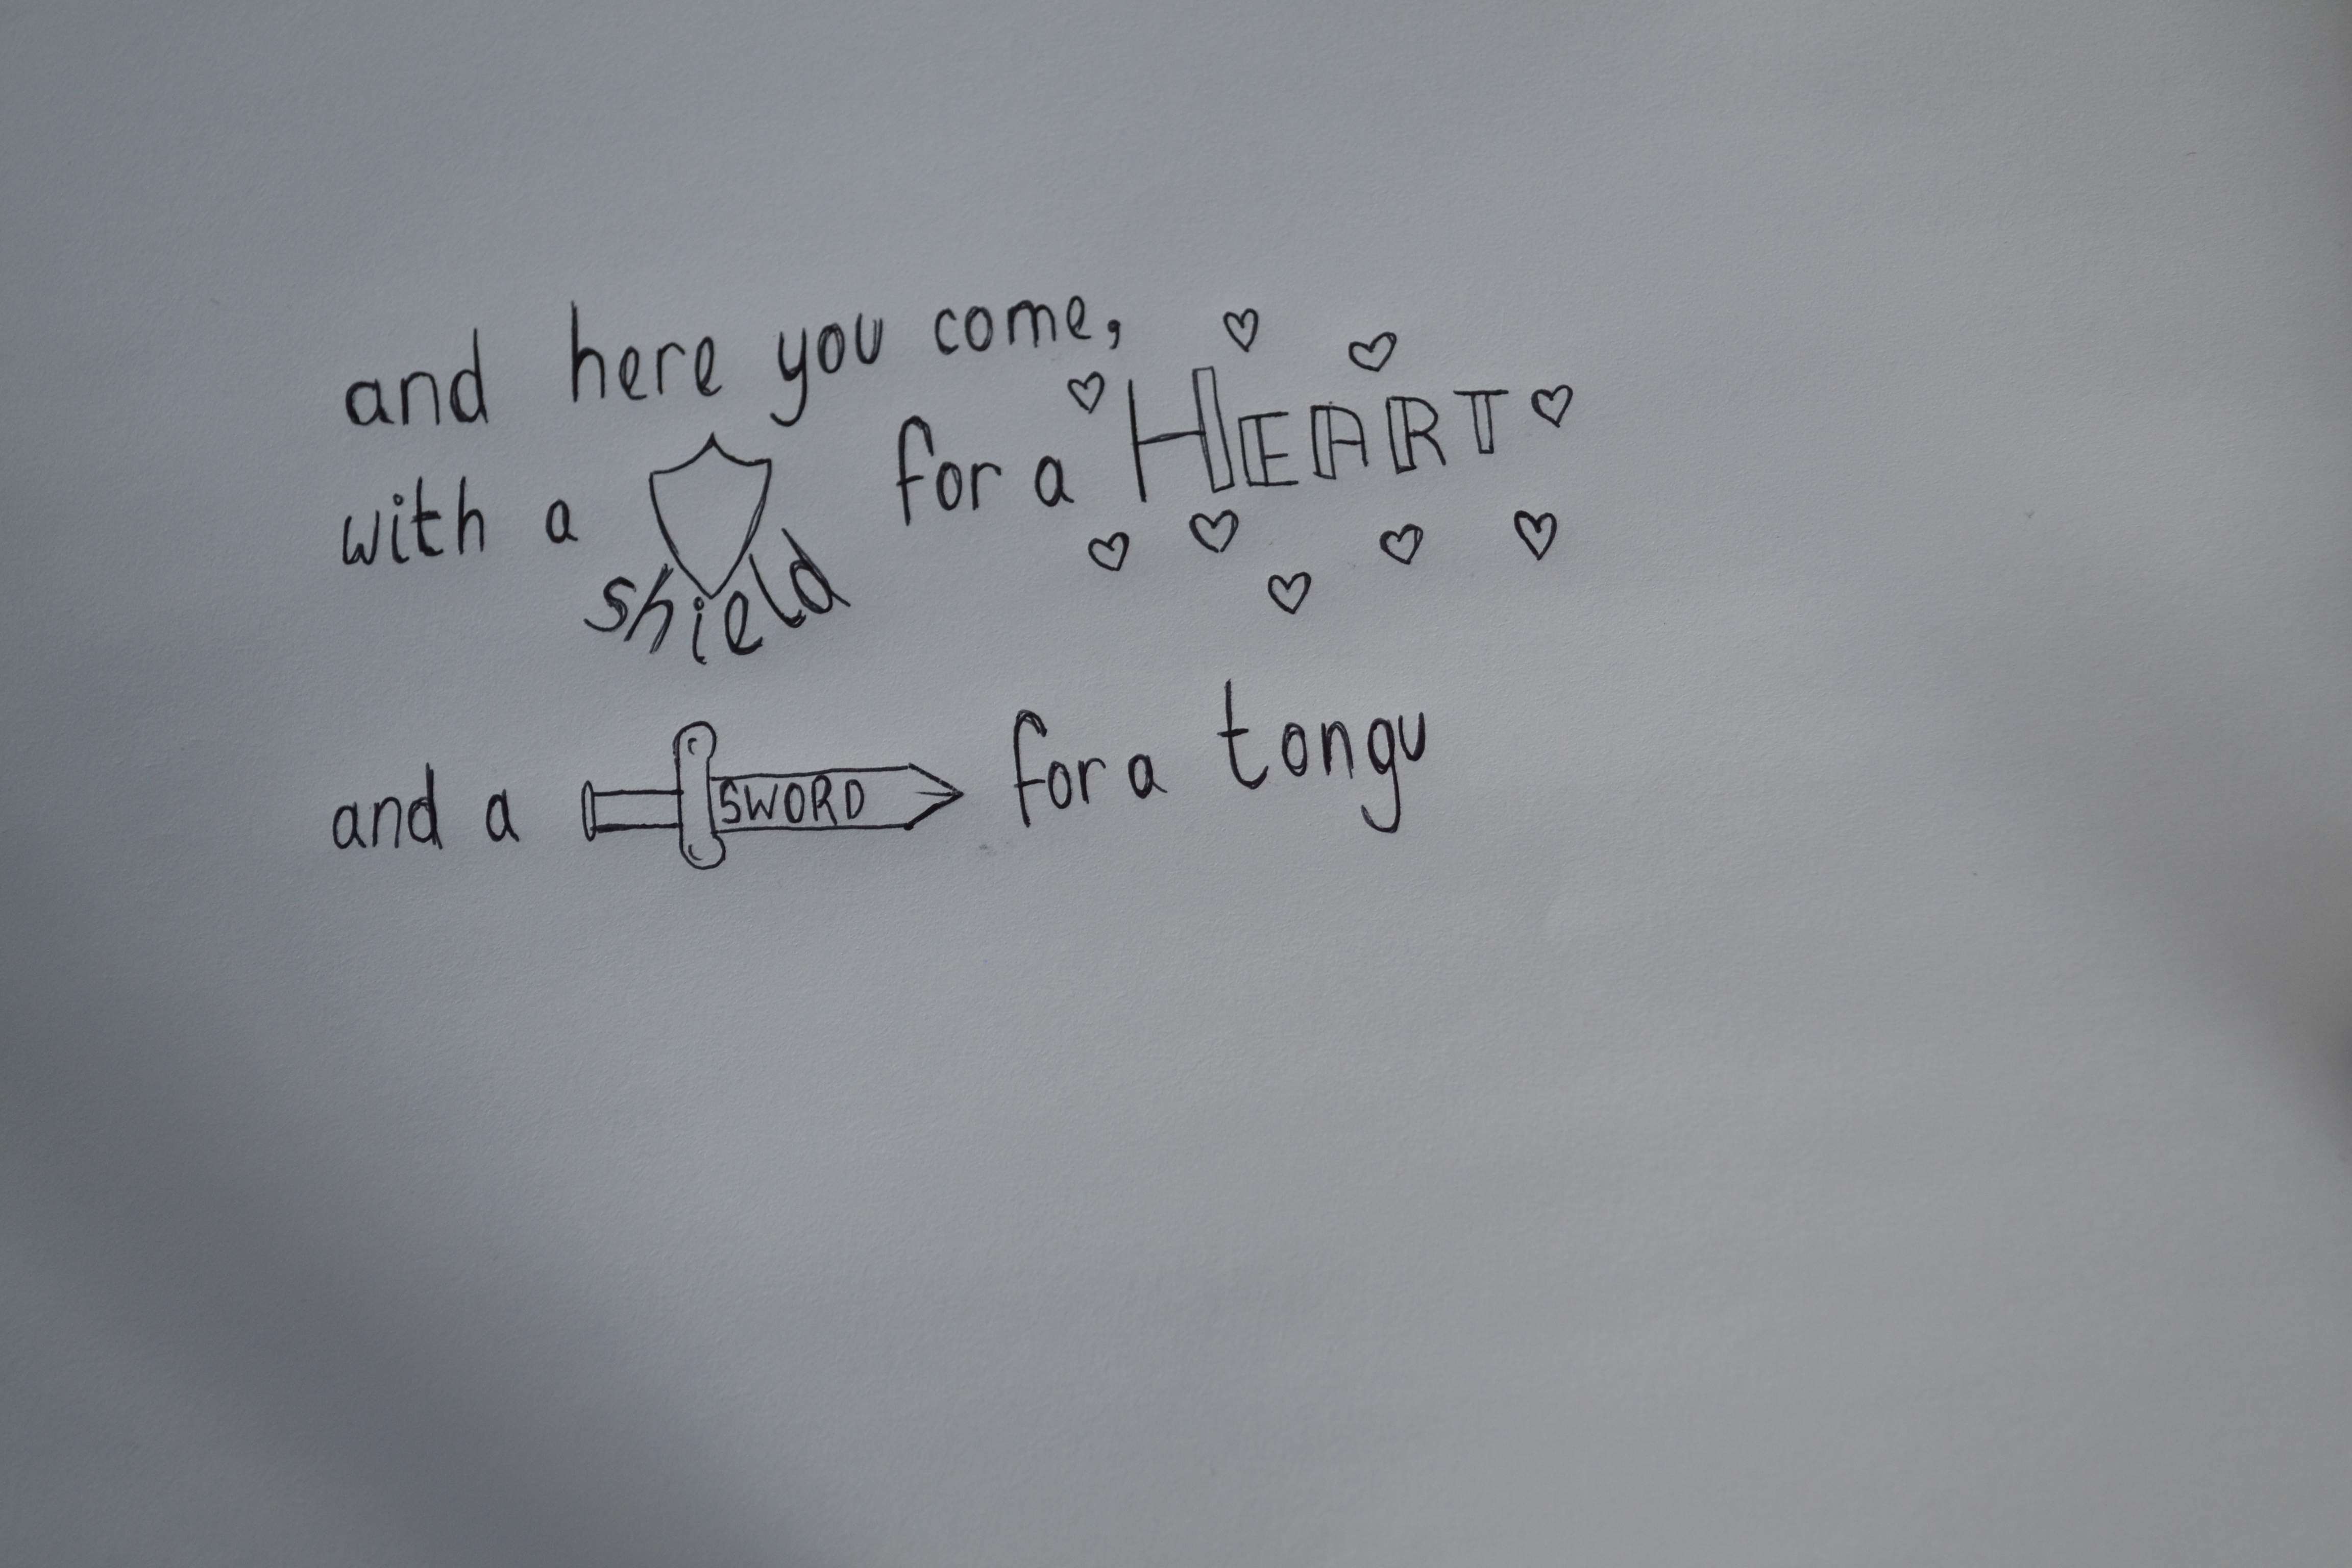 and here you come,
with a shield for a HEART
and a SWORD for a tongu